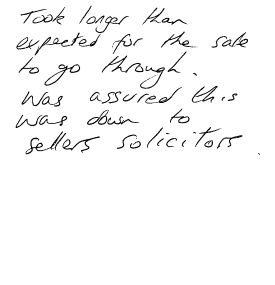 Took longer than
expected for the sale
to go through.
Was assured this
was down to
sellers solicitors.